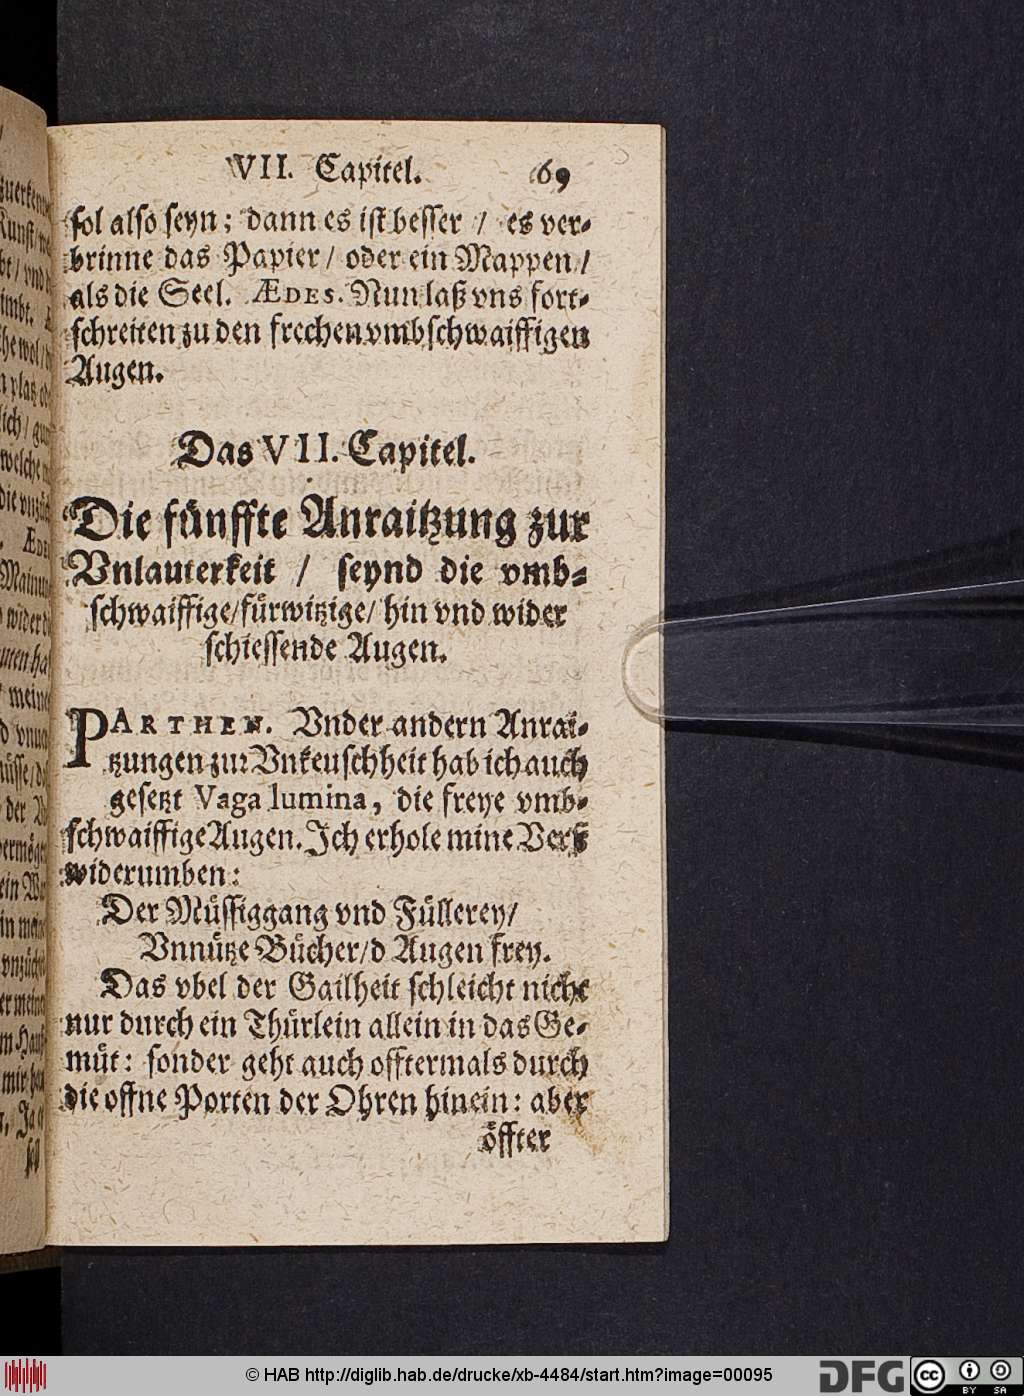 VII. Capitel. 69
sol also seyn; dann es ist besser / es ver-
brinne das Papier / oder ein Mappen /
als die Seel. ÆDES. Nun laß vns fort-
schreiten zu den frechen vmbschwaiffigen
Augen.
Das VII. Capitel.
Die fünffte Anraitzung zur
Vnlauterkeit / seynd die vmb-
schwaiffige/fürwitzige/ hin vnd wider
schiessende Augen.
PARTHEN. Vnder andern Anrai-
tzungen zur Vnkeuschheit hab ich auch
gesetzt Vaga lumina, die freye vmb-
schwaiffige Augen. Ich erhole mine Verß
widerumben:
Der Müssiggang vnd Füllerey/
Vnnütze Bücher/d Augen frey.
Das vbel der Gailheit schleicht nicht
nur durch ein Thürlein allein in das Ge-
müt: sonder geht auch offtermals durch
die offne Porten der Ohren hinein: aber
öffter
© HAB http://diglib.hab.de/drucke/xb-4484/start.htm?image=00095
DFG
CC BY SA